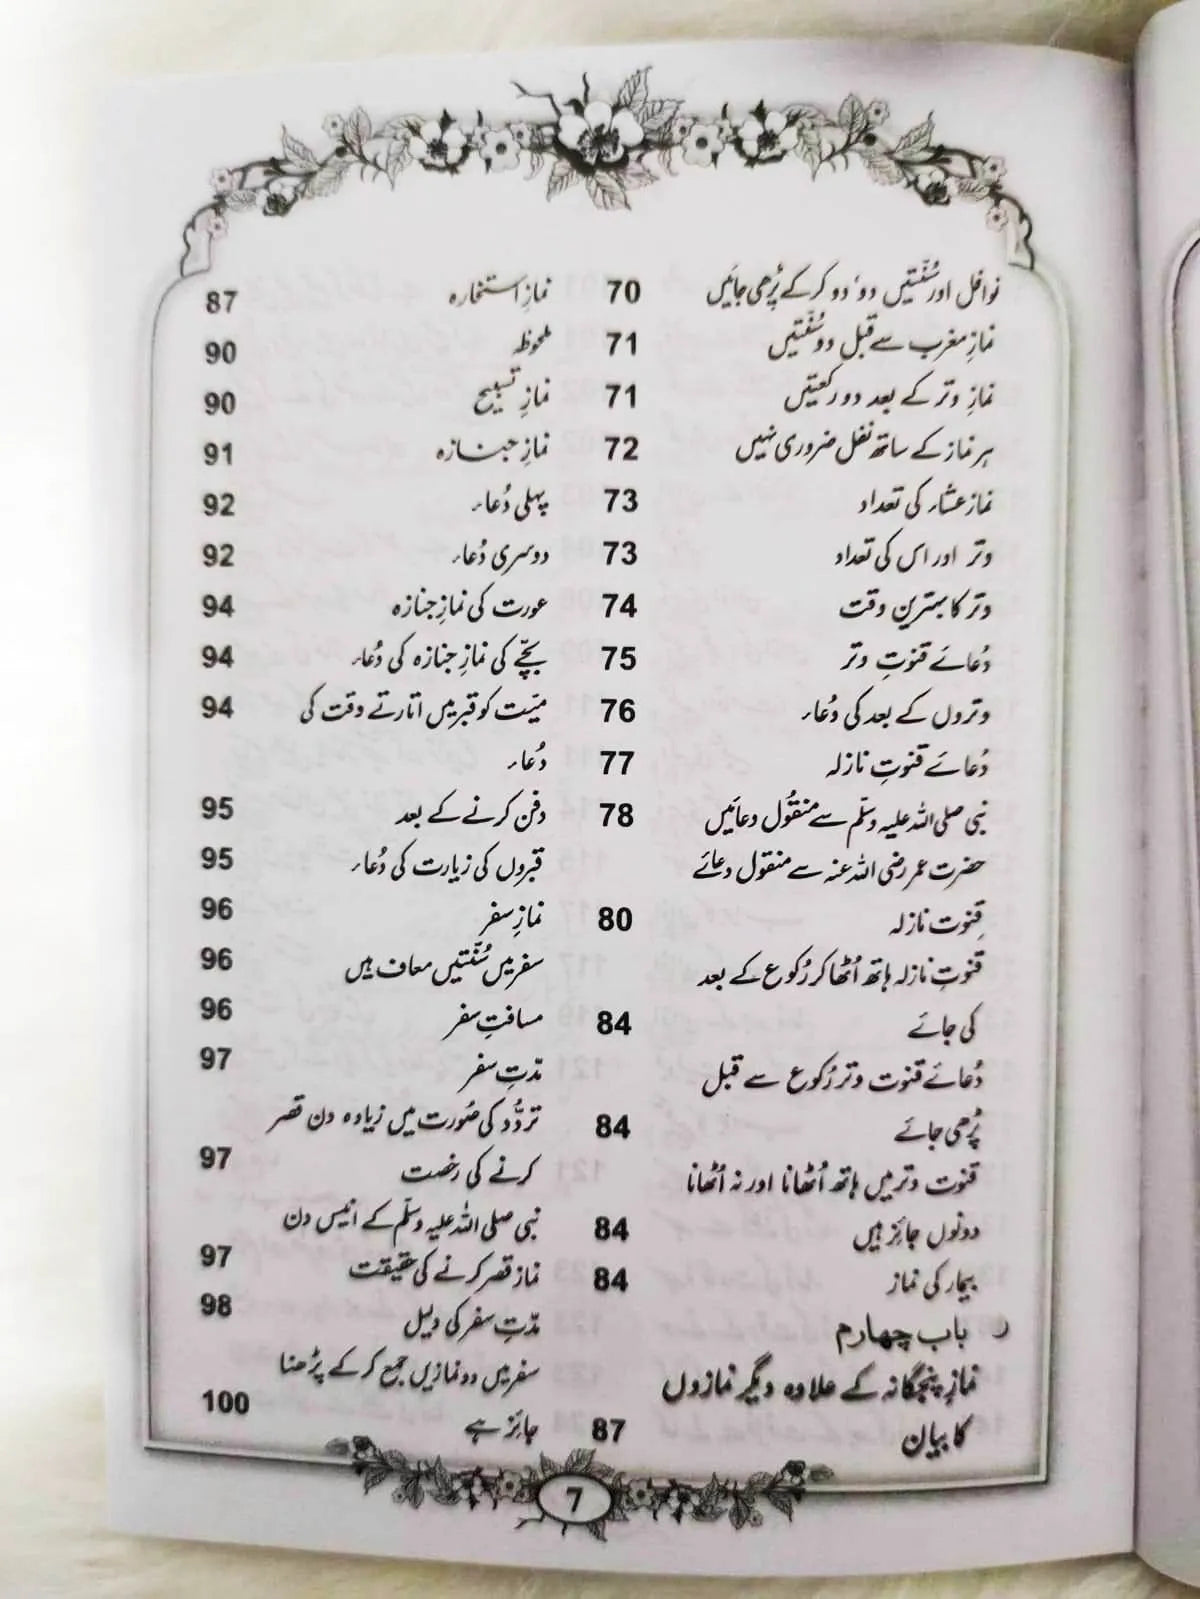 نوافل اور سُنّتیں دو، دو کر کے پڑھی جائیں 70
نمازِ مغرب سے قبل دو سُنّتیں 71
نمازِ وتر کے بعد دو رکعتیں 71
ہر نماز کے ساتھ نفل ضروری نہیں 72
نماز عشاء کی تعداد 73
وتر اور اس کی تعداد 73
وتر کا بہترین وقت 74
دُعائے قنوتِ وتر 75
وتروں کے بعد کی دُعاء 76
دُعائے قنوتِ نازلہ 77
نبی صلی اللہ علیہ وسلّم سے منقُول دعائیں 78
حضرت عمر رضی اللہ عنہ سے منقول دعائے
قِنوت نازلہ 80
قنوتِ نازلہ ہاتھ اُٹھا کر رُکوع کے بعد
کی جائے 84
دُعائے قنوت وتر رُکوع سے قبل
پڑھی جائے 84
قنوت وتر میں ہاتھ اُٹھانا اور نہ اُٹھانا
دونوں جائز ہیں 84
بیمار کی نماز 84
باب چہارم
نمازِ پنجگانہ کے علاوہ دیگر نمازوں
کا بیان 87
نمازِ استخارہ 87
ملحوظہ 90
نمازِ تسبیح 90
نمازِ جنازہ 91
پہلی دُعاء 92
دوسری دُعاء 92
عورت کی نمازِ جنازہ 94
بچّے کی نمازِ جنازہ کی دُعاء 94
میّت کو قبر میں اتارتے وقت کی 94
دُعاء
دفن کرنے کے بعد 95
قبروں کی زیارت کی دُعاء 95
نمازِ سفر 96
سفر میں سُنّتیں معاف ہیں 96
مسافتِ سفر 96
مدّتِ سفر 97
تردُّد کی صُورت میں زیادہ دن قصر
کرنے کی رخصت 97
نبی صلی اللہ علیہ وسلّم کے انیس دن
نماز قصر کرنے کی حقیقت 97
مدّتِ سفر کی دلیل 98
سفر میں دو نمازیں جمع کر کے پڑھنا
جائز ہے 100
7